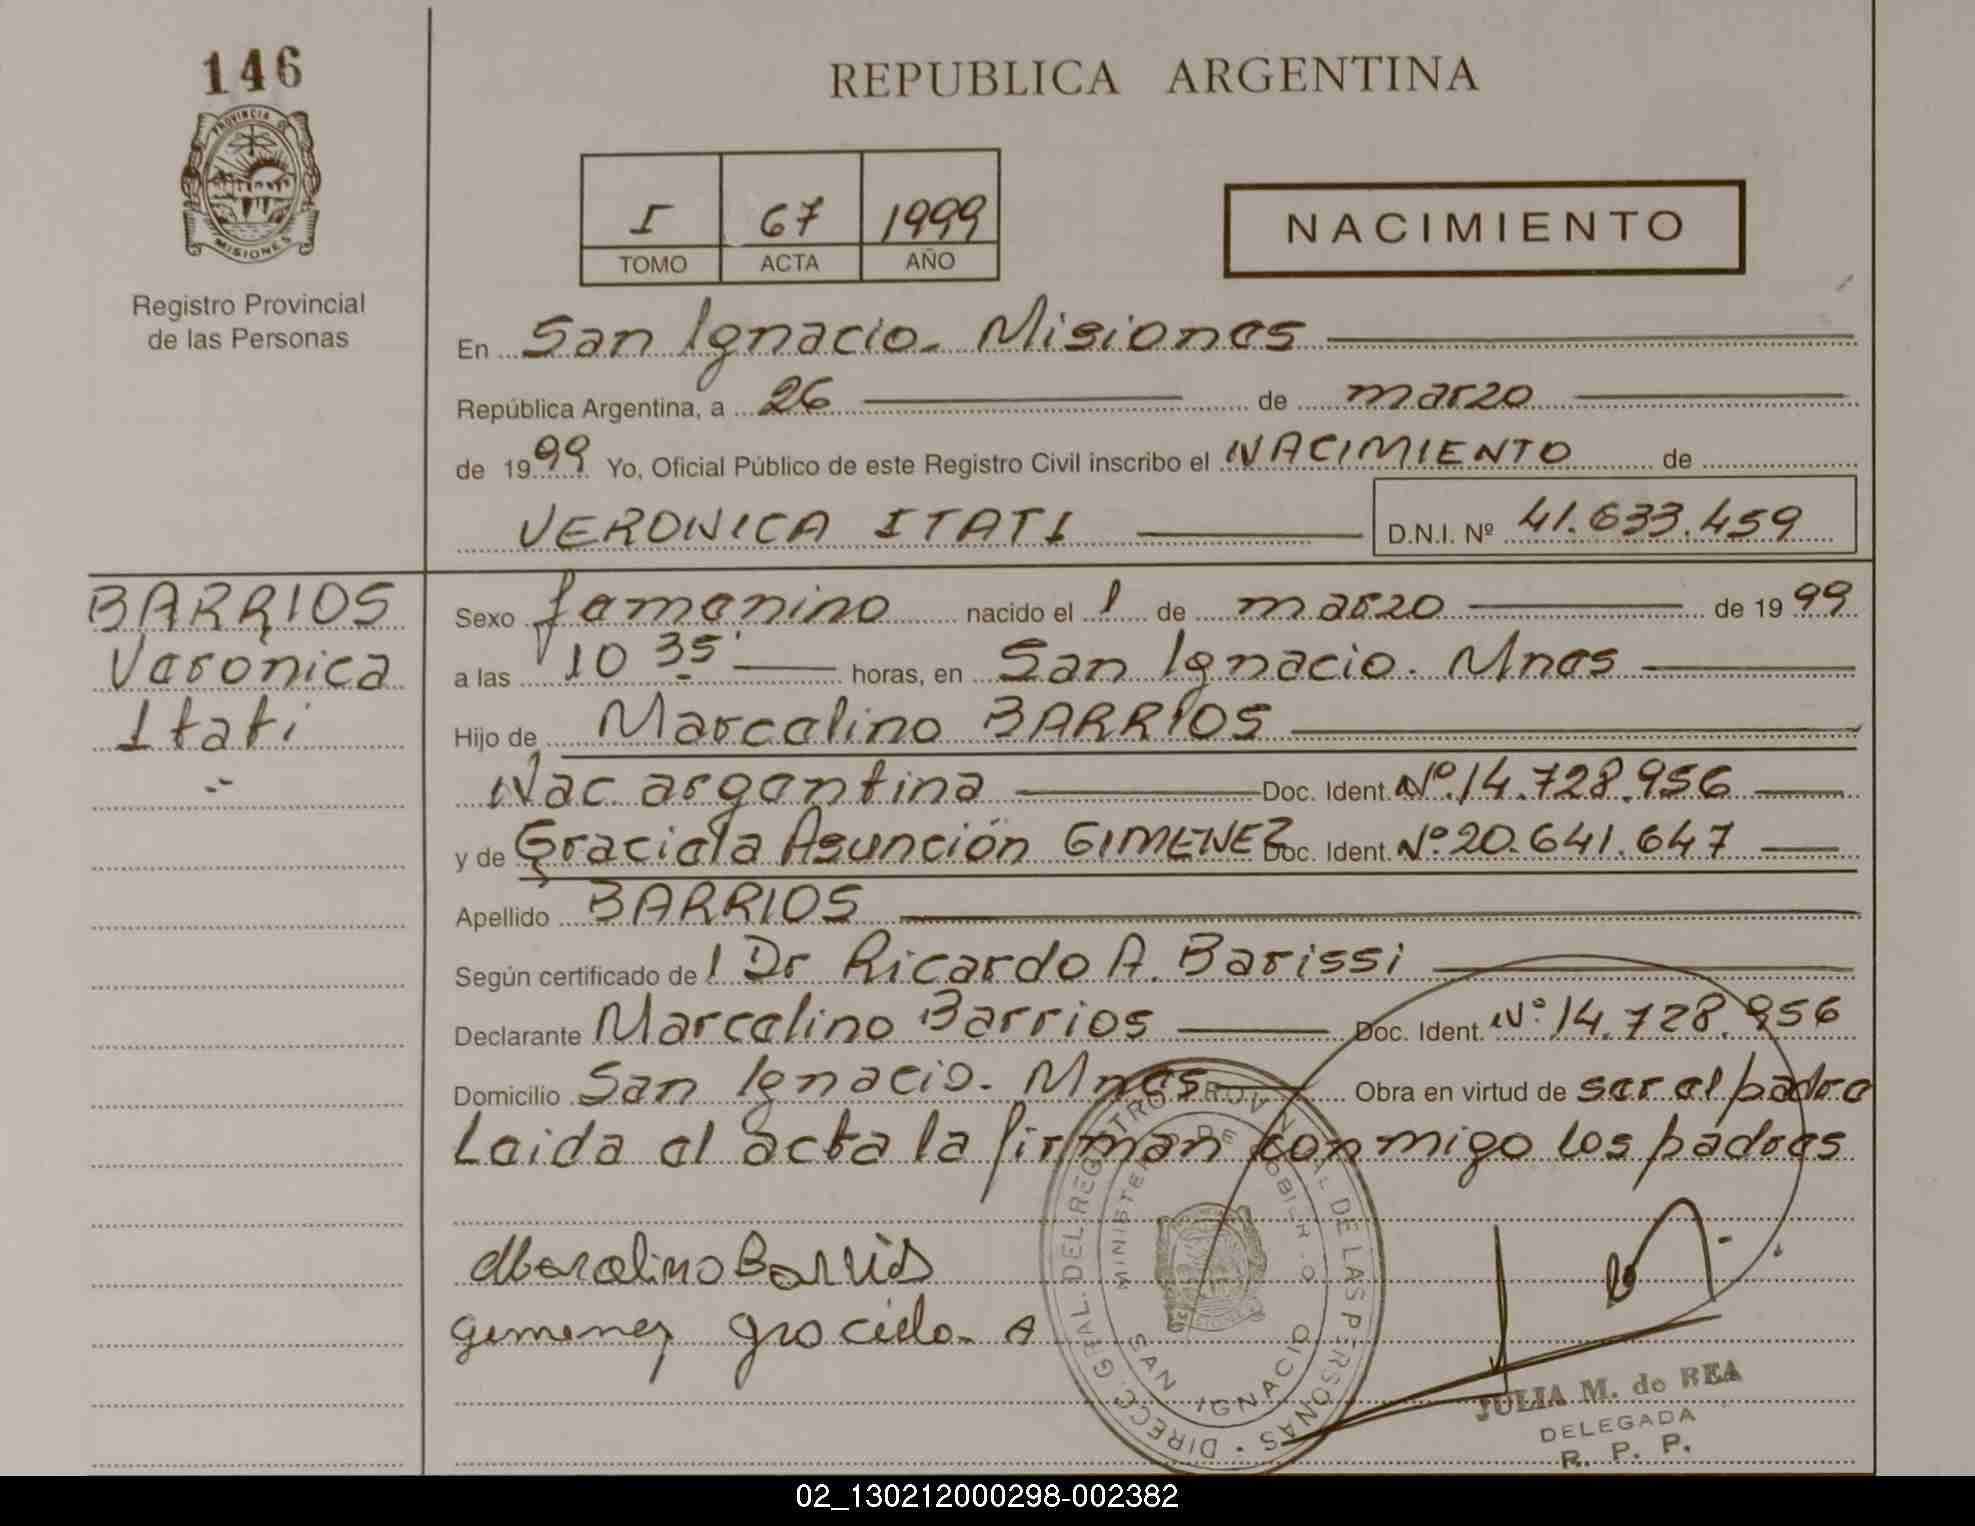 146
PROVINCIA DE
MISIONES
Registro Provincial
de las Personas
REPUBLICA ARGENTINA
I 67 1999
TOMO ACTA AÑO
NACIMIENTO
En San Ignacio. Misiones
República Argentina, a 26 de marzo
de 1999 Yo, Oficial Público de este Registro Civil inscribo el NACIMIENTO de
VERONICA ITATI D.N.I. Nº 41.633.459
BARRIOS
Veronica
Itati
Sexo femenino nacido el 1 de marzo de 1999
a las 10 35' horas, en San Ignacio. Mnes
Hijo de Marcelino BARRIOS
Nac argentina Doc. Ident. Nº 14.728.956
y de Graciela Asunción GIMENEZ Doc. Ident. Nº 20.641.647
Apellido BARRIOS
Según certificado de l Dr Ricardo A. Barissi
Declarante Marcelino Barrios Doc. Ident. Nº 14.728.956
Domicilio San Ignacio. Mnes Obra en virtud de ser el padre
Leida el acta la firman conmigo los padres
Marcelino Barrios
Gimenez Graciela A
DIRECC. GRAL. DEL REGISTRO PROVINCIAL DE LAS PERSONAS
MINISTERIO DE GOBIERNO
SAN IGNACIO
JULIA M. de REA
DELEGADA
R. P. P.
02_130212000298-002382